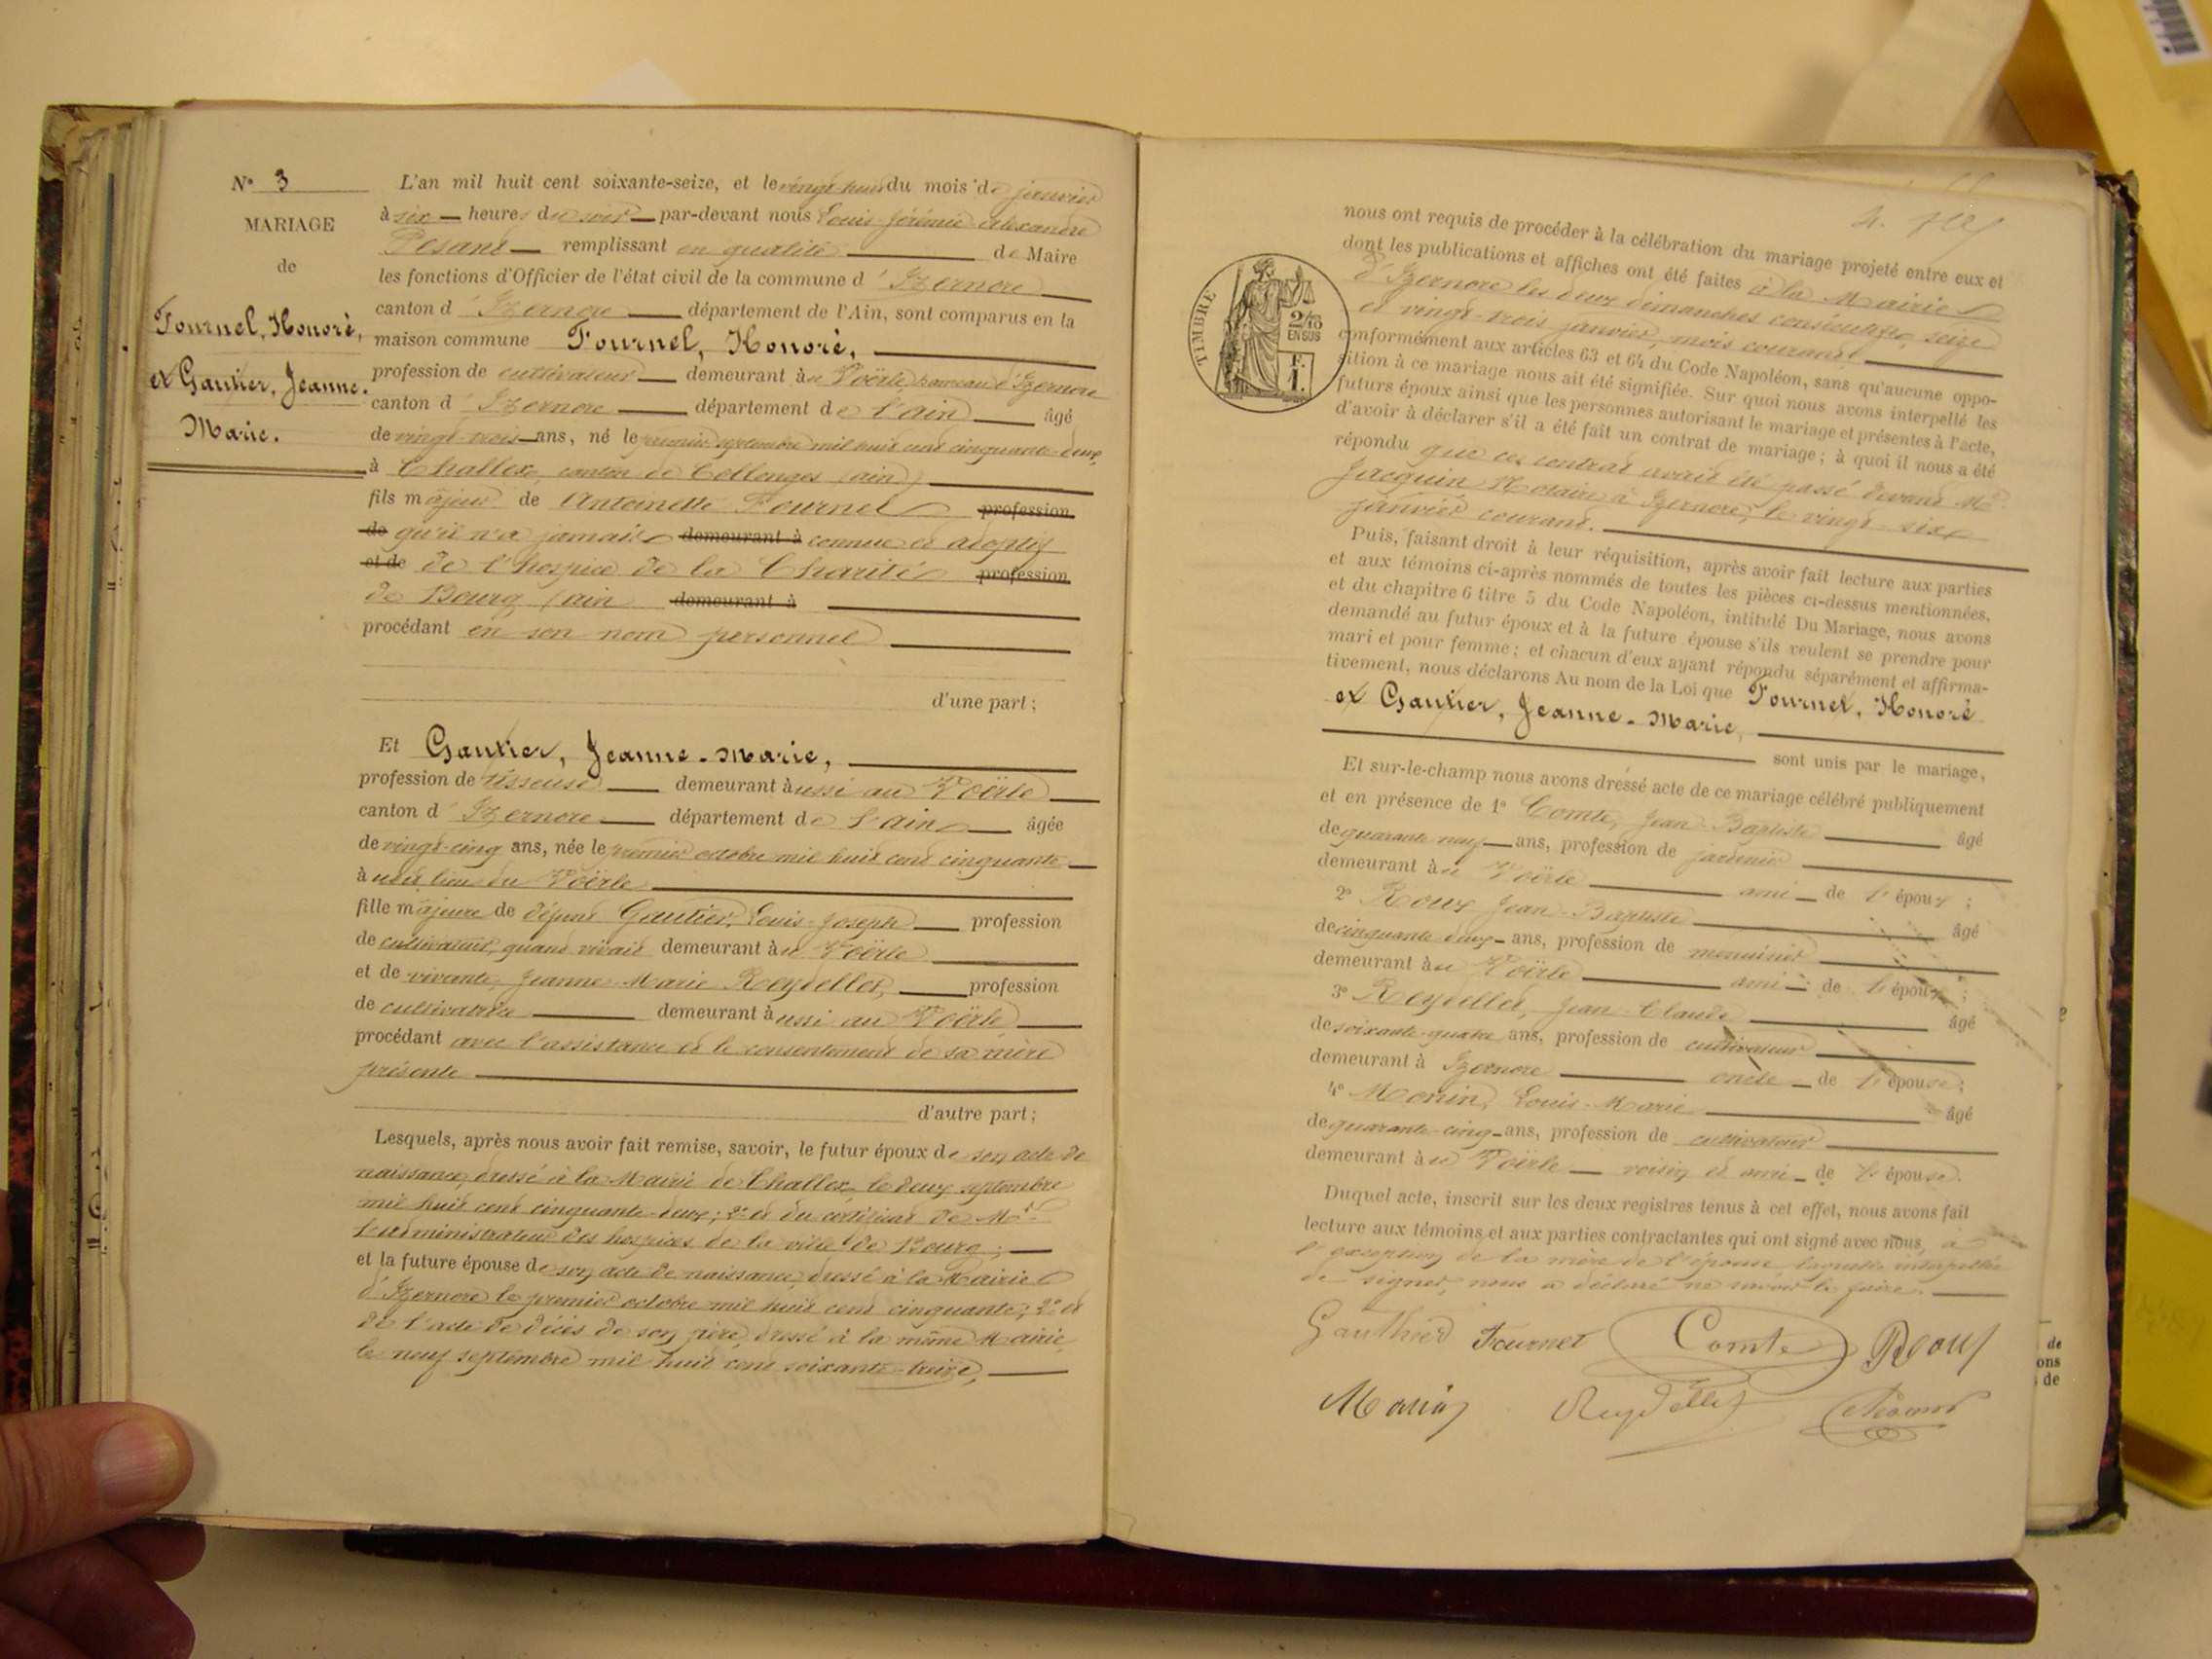 N° 3
MARIAGE
de
Fournel, Honoré,
et Gautier, Jeanne-
Marie.
L'an mil huit cent soixante-seize, et le vingt-huit du mois de janvier
à six heures du soir par-devant nous Louis Jérémie Alexandre
remplissant en qualité de Maire
les fonctions d'Officier de l'état civil de la commune d'Izernore
canton d'Izernore département de l'Ain, sont comparus en la
maison commune Fournel, Honoré,
profession de cultivateur demeurant au Voërle hameau d'Izernore
canton d'Izernore département de l'ain âgé
de vingt-trois ans, né le premier septembre mil huit cent cinquante-deux,
à Challex, canton de Collonges (ain)
fils majeur de Antoinette Fournel profession
de qu'il n'a jamais demeurant à connue et adoptif
et de de l'hospice de la Charité profession
de Bourg (ain demeurant à
procédant en son nom personnel
d'une part;
Et Gautier, Jeanne-Marie,
profession de tisseuse demeurant aussi au Voërle
canton d'Izernore département de l'ain âgée
de vingt-cinq ans, née le premier octobre mil huit cent cinquante
à lieu du Voërle
fille majeure de défunt Gautier, Louis-Joseph profession
de cultivateur, quand vivait demeurant au Voërle
et de vivante, Jeanne-Marie Reydellet, profession
de cultivatrice demeurant aussi au Voërle
procédant avec l'assistance et le consentement de sa mère
présente
d'autre part;
Lesquels, après nous avoir fait remise, savoir, le futur époux de son acte de
naissance, dressé à la Mairie de Challex, le deux septembre
mil huit cent cinquante-deux; 2° et du certificat de Mr
l'administrateur des hospices de la ville de Bourg;
et la future épouse de son acte de naissance, dressé à la Mairie
d'Izernore le premier octobre mil huit cent cinquante; 2° et
de l'acte de décès de son père, dressé à la même Mairie,
le neuf septembre mil huit cent soixante-treize,
nous ont requis de procéder à la célébration du mariage projeté entre eux et
dont les publications et affiches ont été faites à la Mairie
d'Izernore les deux dimanches consécutifs, seize
et vingt-trois janvier, mois courant
conformément aux articles 63 et 64 du Code Napoléon, sans qu'aucune oppo-
sition à ce mariage nous ait été signifiée. Sur quoi nous avons interpellé les
futurs époux ainsi que les personnes autorisant le mariage et présentes à l'acte,
d'avoir à déclarer s'il a été fait un contrat de mariage; à quoi il nous a été
répondu que ce contrat avait été passé devant Me
Jacquin Notaire à Izernore, le vingt-six
janvier courant.
TIMBRE
2/10
EN SUS
F.
1.
Puis, faisant droit à leur réquisition, après avoir fait lecture aux parties
et aux témoins ci-après nommés de toutes les pièces ci-dessus mentionnées,
et du chapitre 6 titre 5 du Code Napoléon, intitulé Du Mariage, nous avons
demandé au futur époux et à la future épouse s'ils veulent se prendre pour
mari et pour femme; et chacun d'eux ayant répondu séparément et affirma-
tivement, nous déclarons Au nom de la Loi que Fournel, Honoré
et Gautier, Jeanne-Marie,
sont unis par le mariage,
Et sur-le-champ nous avons dressé acte de ce mariage célébré publiquement
et en présence de 1° Comte, Jean-Baptiste âgé
de quarante-neuf ans, profession de jardinier
demeurant au Voërle ami de l'époux;
2° Roux Jean-Baptiste âgé
de cinquante-deux ans, profession de menuisier
demeurant au Voërle ami de l'époux;
3° Reydellet, Jean-Claude âgé
de soixante-quatre ans, profession de cultivateur
demeurant à Izernore oncle de l'épouse;
4° Monin, Louis-Marie âgé
de quarante-cinq ans, profession de cultivateur
demeurant au Voërle voisin et ami de l'épouse.
Duquel acte, inscrit sur les deux registres tenus à cet effet, nous avons fait
lecture aux témoins et aux parties contractantes qui ont signé avec nous, à
l'exception de la mère de l'épouse, laquelle interpellée
de signer, nous a déclaré ne savoir le faire.
Gauthier Fournel Comte Roux
Monin Reydellet
de
ons
de